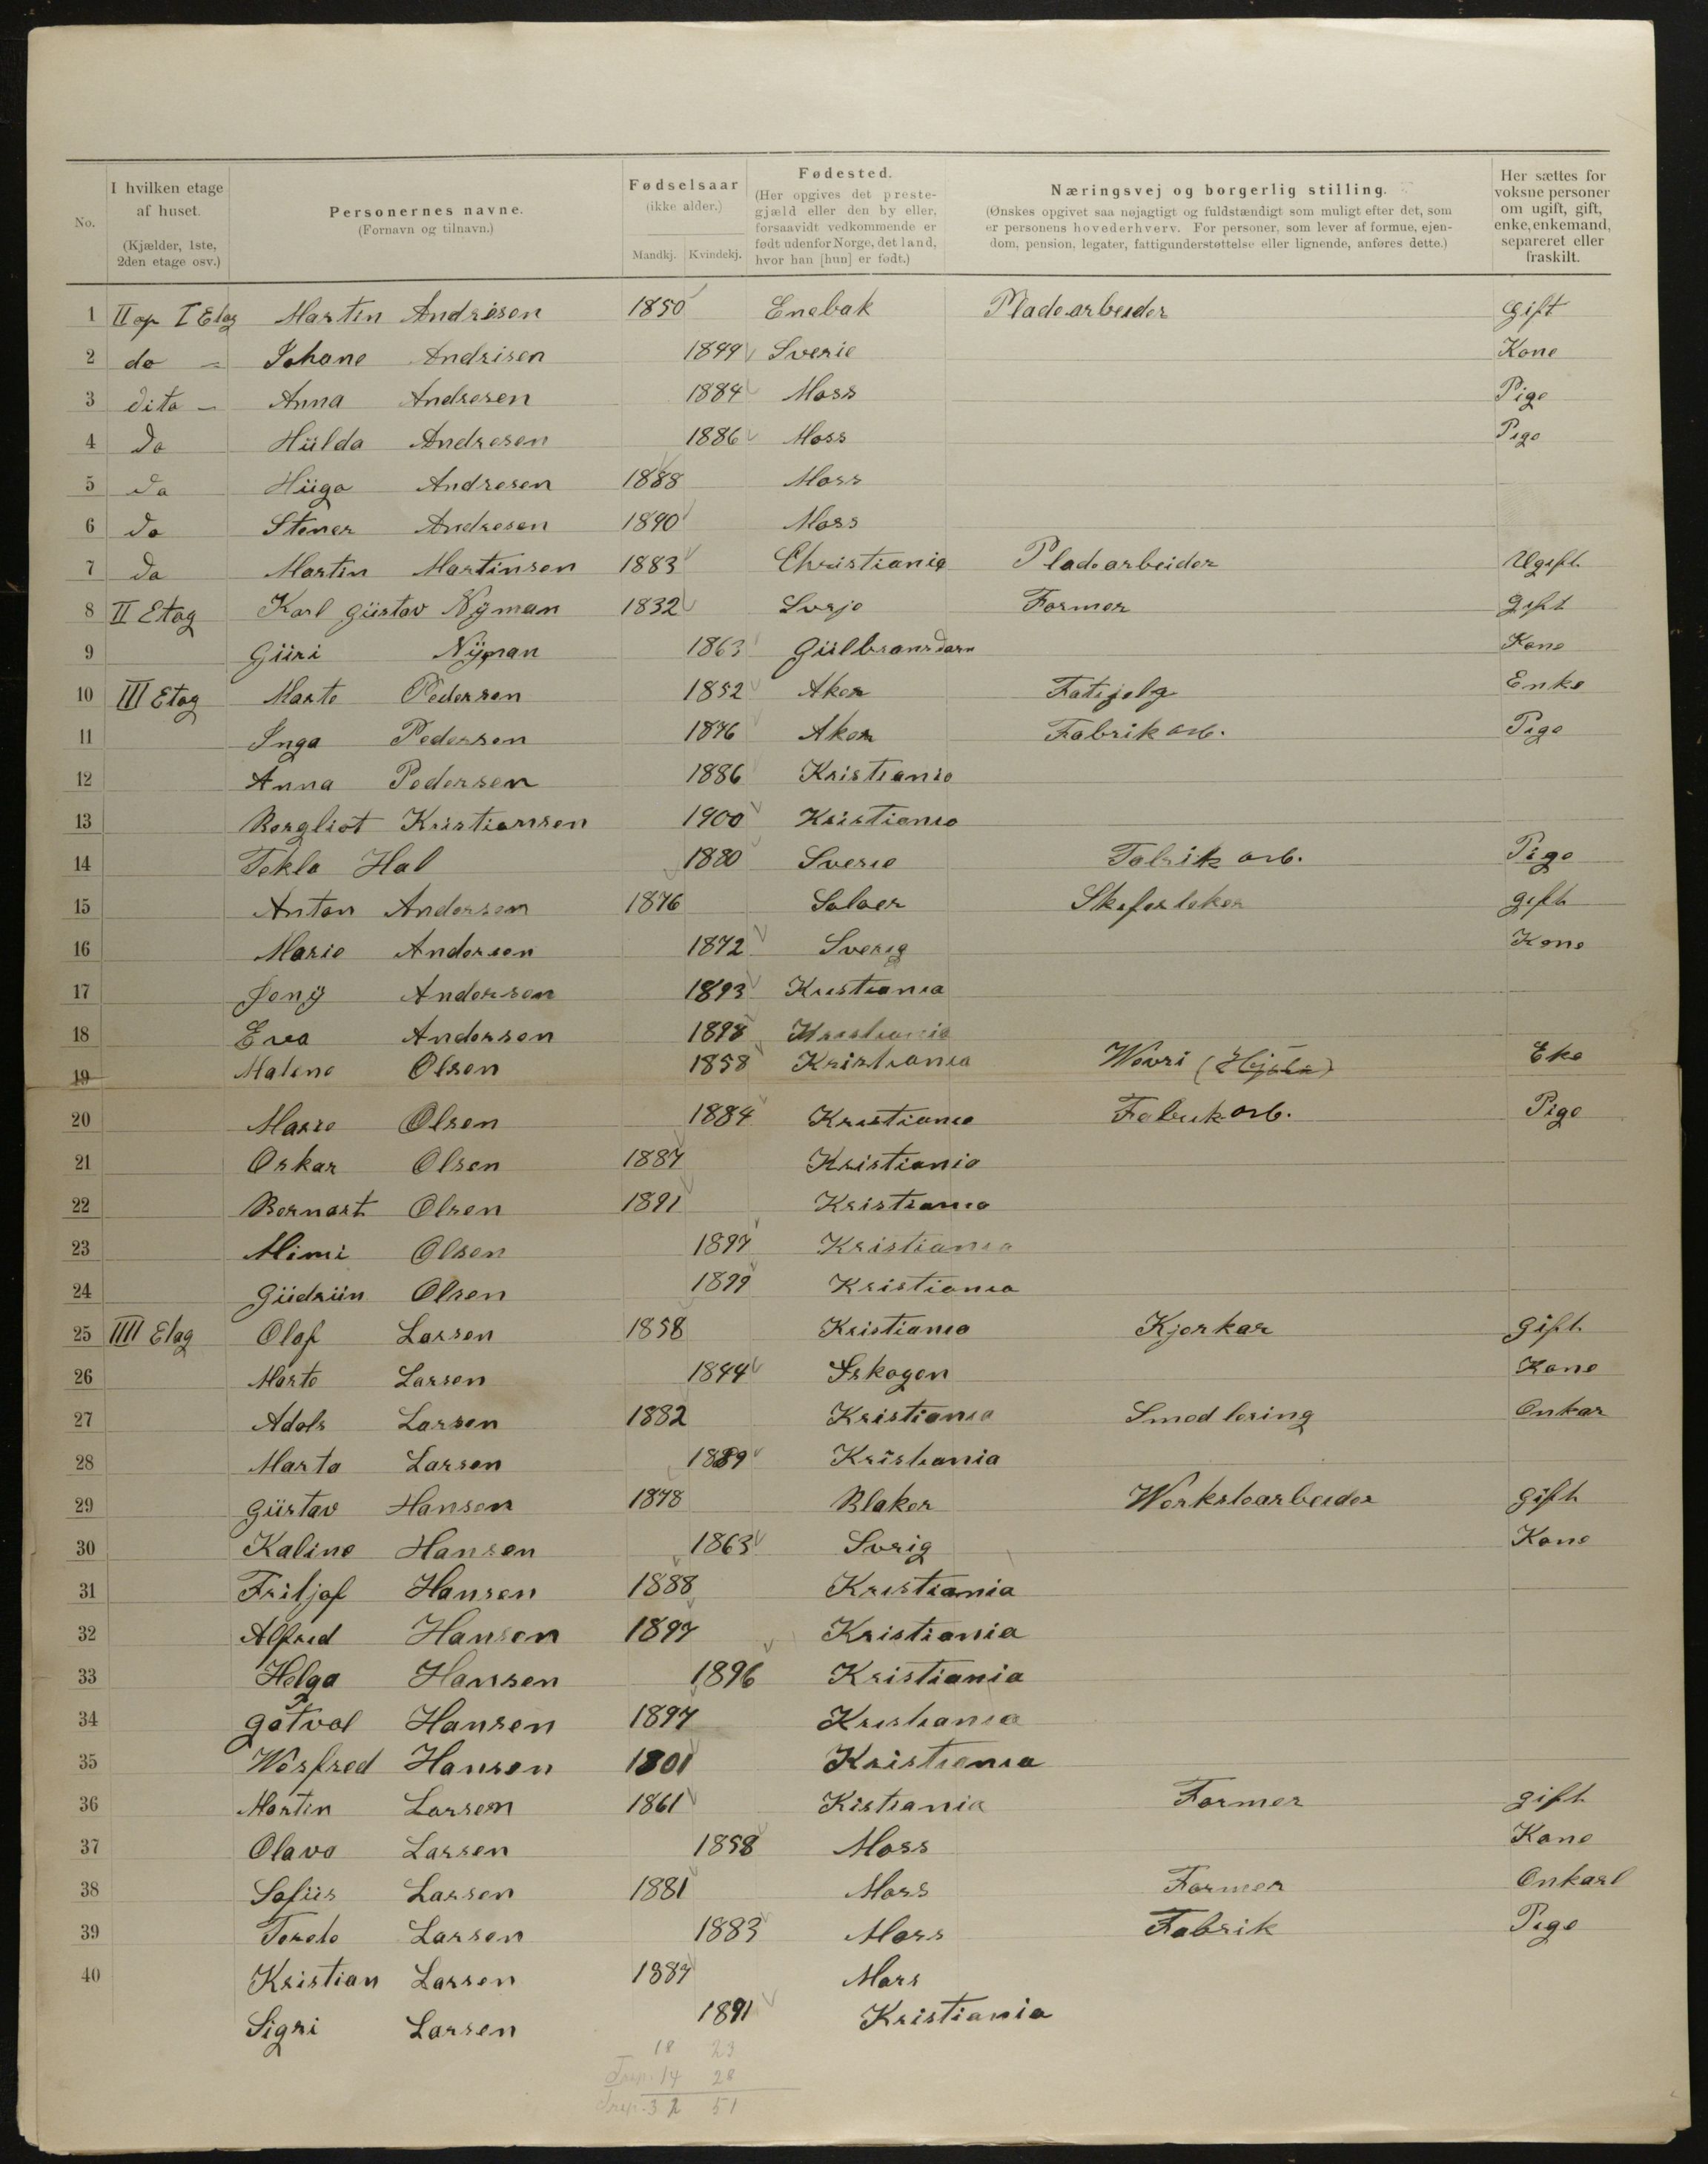 No.
I hvilken etage af huset. (Kjælder, 1ste, 2den etage osv.)
Personernes navne. (Fornavn og tilnavn.)
Fødselsaar (ikke alder.) Mandkj. Kvindekj.
Fødested. (Her opgives det prestegjæld eller den by eller, forsaavidt vedkommende er født udenfor Norge, det land, hvor han [hun] er født.)
Næringsvej og borgerlig stilling. (Ønskes opgivet saa nøjagtigt og fuldstændigt som muligt efter det, som er personens hovederhverv. For personer, som lever af formue, ejendom, pension, legater, fattigunderstøttelse eller lignende, anføres dette.)
Her sættes for voksne personer om ugift, gift, enke, enkemand, separeret eller fraskilt.
1 II op I Etag Martin Andresen 1850 Enebak Pladearbeider Gift
2 do - Johane Andrisen 1849 Sverie Kone
3 dito - Anna Andresen 1884 Moss Pige
4 do Hülda Andresen 1886 Moss Pige
5 do Hügo Andresen 1888 Moss
6 do Stener Andresen 1890 Moss
7 do Martin Martinsen 1883 Christiania Pladearbeider Ugift
8 II Etag Karl Güstav Nÿman 1832 Sverje Former gift
9 Güri Nÿman 1863 Kone
10 III Etag Marte Pedersen 1852 Aker Enke
11 Inga Pedersen 1876 Aker Fabrik arb. Pige
12 Anna Pedersen 1886 Kristiania
13 Borgliot Kristiansen 1900 Kristiania
14 Tekla Hal 1880 Sverie Fabrik arb. Pige
15 Anton Andersen 1876 Soloer gift
16 Marie Andersen 1872 Sverig Kone
17 Jenÿ Andersen 1893 Kristiania
18 Eva Andersen 1898 Kristiania
19 Malene Olsen 1858 Kristiania Eke
20 Marie Olsen 1884 Kristiania Fabrik arb. Pige
21 Oskar Olsen 1887 Kristiania
22 Bernart Olsen 1891 Kristiania
23 Mimi Olsen 1897 Kristiania
24 Güdrün Olsen 1899 Kristiania
25 IIII Etag Olaf Larsen 1858 Kristiania Kjorkar gift
26 Marte Larsen 1844 Eskogen Kone
27 Adols Larsen 1882 Kristiania Smed lering Onkar
28 Marta Larsen 1889 Kristiania
29 Güstav Hansen 1878 Blaker Verkstearbeider gift
30 Kaline Hansen 1863 Sverig Kone
31 Fritjof Hansen 1888 Kristiania
32 Alfred Hansen 1897 Kristiania
33 Helga Hansen 1896 Kristiania
34 Gotval Hansen 1897 Kristiania
35 Hansen Kristiania
36 Martin Larsen 1861 Kistiania Former gift
37 Olava Larsen 1858 Moss Kone
38 Sofüs Larsen 1881 Moss Former Onkarl
39 Larsen 1883 Moss Fabrik Pige
40 Kristian Larsen 1887 Moss
Sigri Larsen 1891 Kristiania
18 23
14 28
32 51